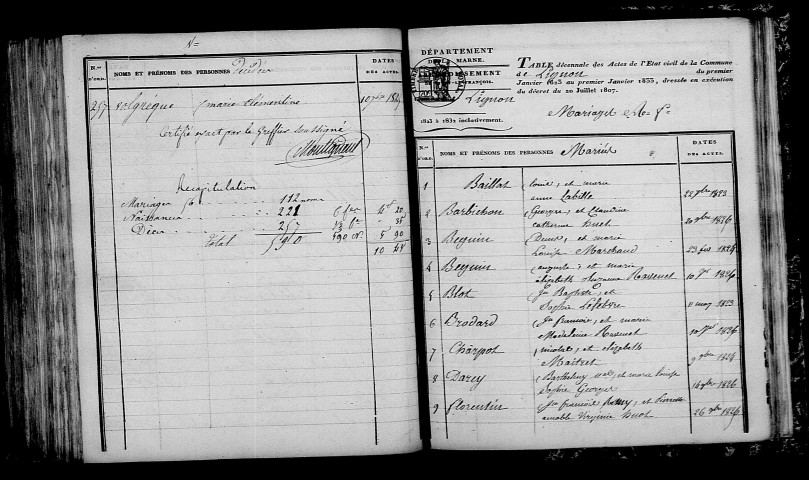 N=
N.os D'ORD. NOMS ET PRÉNOMS DES PERSONNES Décédées DATES DES ACTES.
257 Volgrèque marie Clémentine
Certifié exact par le Greffier soussigné
Récapitulation
Mariages 112 noms
Naissances 221
Décès 257
Total 590
10 45
DÉPARTEMENT
DE LA MARNE.
TABLE décennale des Actes de l'Etat civil de la Commune
de Lignon du premier
Janvier 1823 au premier Janvier 1833, dressée en exécution
du décret du 20 Juillet 1807.
Lignon
Mariages
1823 à 1832 inclusivement.
N.os D'ORD. NOMS ET PRÉNOMS DES PERSONNES Mariées DATES DES ACTES.
1 Baillat Louis, et marie
anne Labille 1823
2 Barbichon George, et Claudine
catherine Huot 1826
3 Beguin Denis, et marie
Louise Marchand
4 Beguin auguste, et marie
elizabeth Suzanne Rasenet 1826
5 Blot Jn Baptiste, et
Sophie Lefebvre 11 may 1823
6 Brodard Jn francois, et marie
Madeleine Rasenet 1826
7 Charpot nicolas, et elizabeth
Maitret 9 9bre
8 Darcy Barthelemy et marie Louise
Sophie George 1826
9 Florentin Jn francois Remy, et Pierrette
amable Virginie Huot